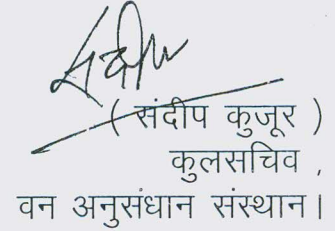 संदीप
( संदीप कुजूर )
कुलसचिव ,
वन अनुसंधान संस्थान।